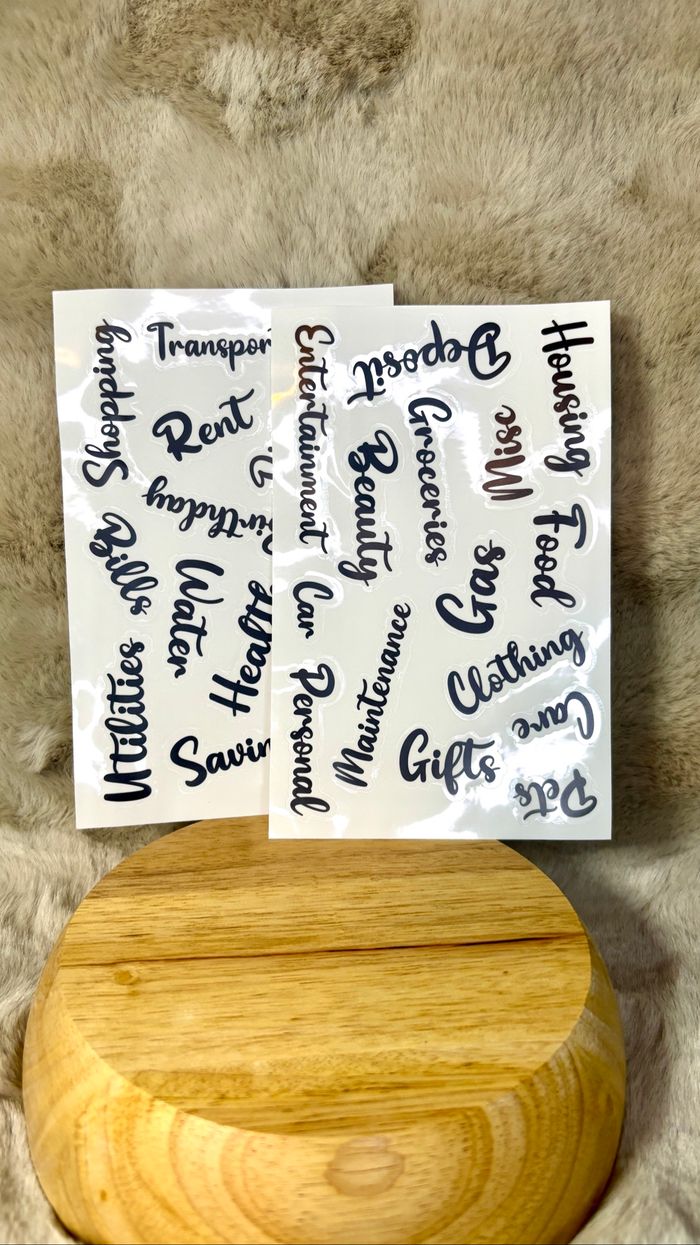 Shopping
Transpor
Rent
Birthday
Bills
Water
Health
Utilities
Savin
Entertainment
Deposit
Housing
Groceries
Misc
Beauty
Food
Gas
Car
Maintenance
Clothing
Personal
Care
Gifts
Pets